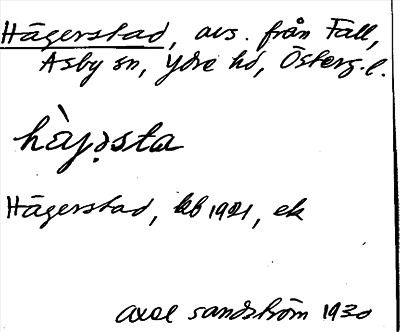 Hägerstad, avs. från Fall,
Asby sn, Ydre hd, Österg.l.
hàɣ̣əsta
Hägerstad, kb 1921, ek
Axel Sandström 1930